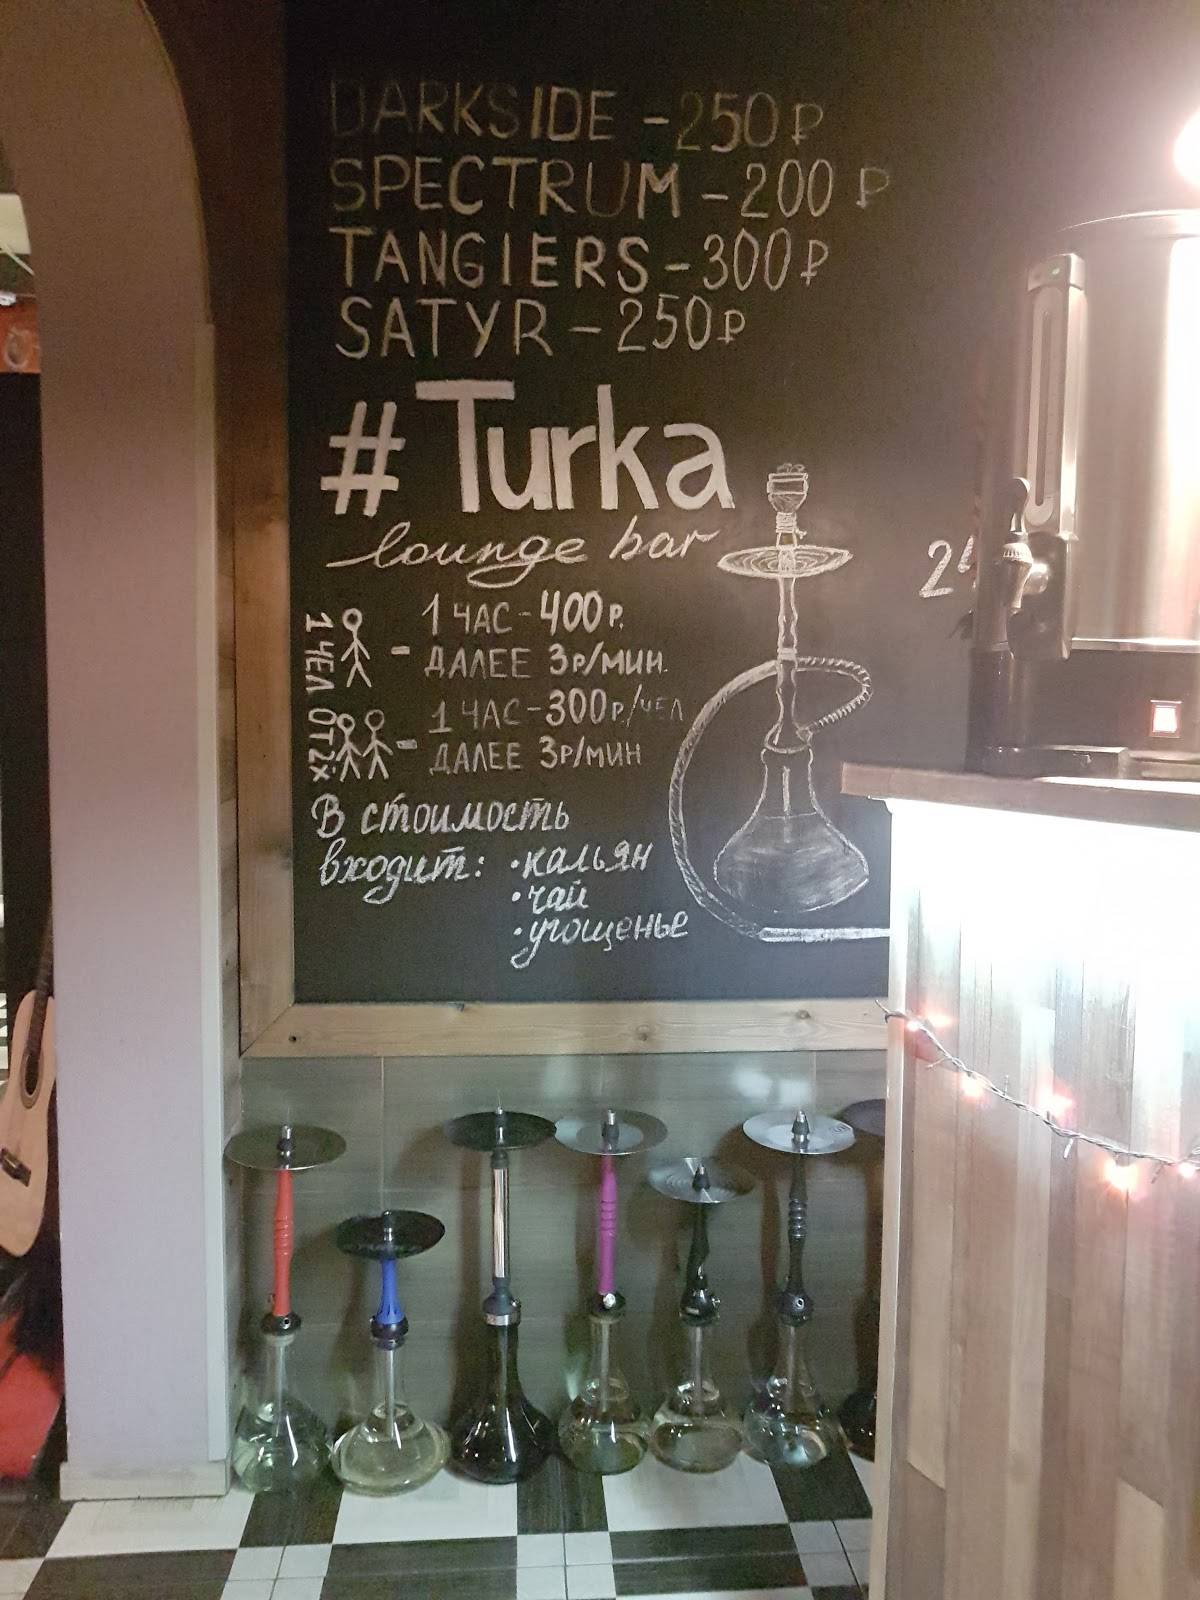 DARKSIDE - 250₽
SPECTRUM - 200 ₽
TANGIERS - 300₽
SATYR - 250₽
#Turka
lounge bar
1 ЧЕЛ - 1 ЧАС - 400 Р.
ДАЛЕЕ 3Р/МИН.
ОТ 2Х - 1 ЧАС - 300Р./ЧЕЛ
ДАЛЕЕ 3Р/МИН
В стоимость
входит: • кальян
• чай
• угощенье